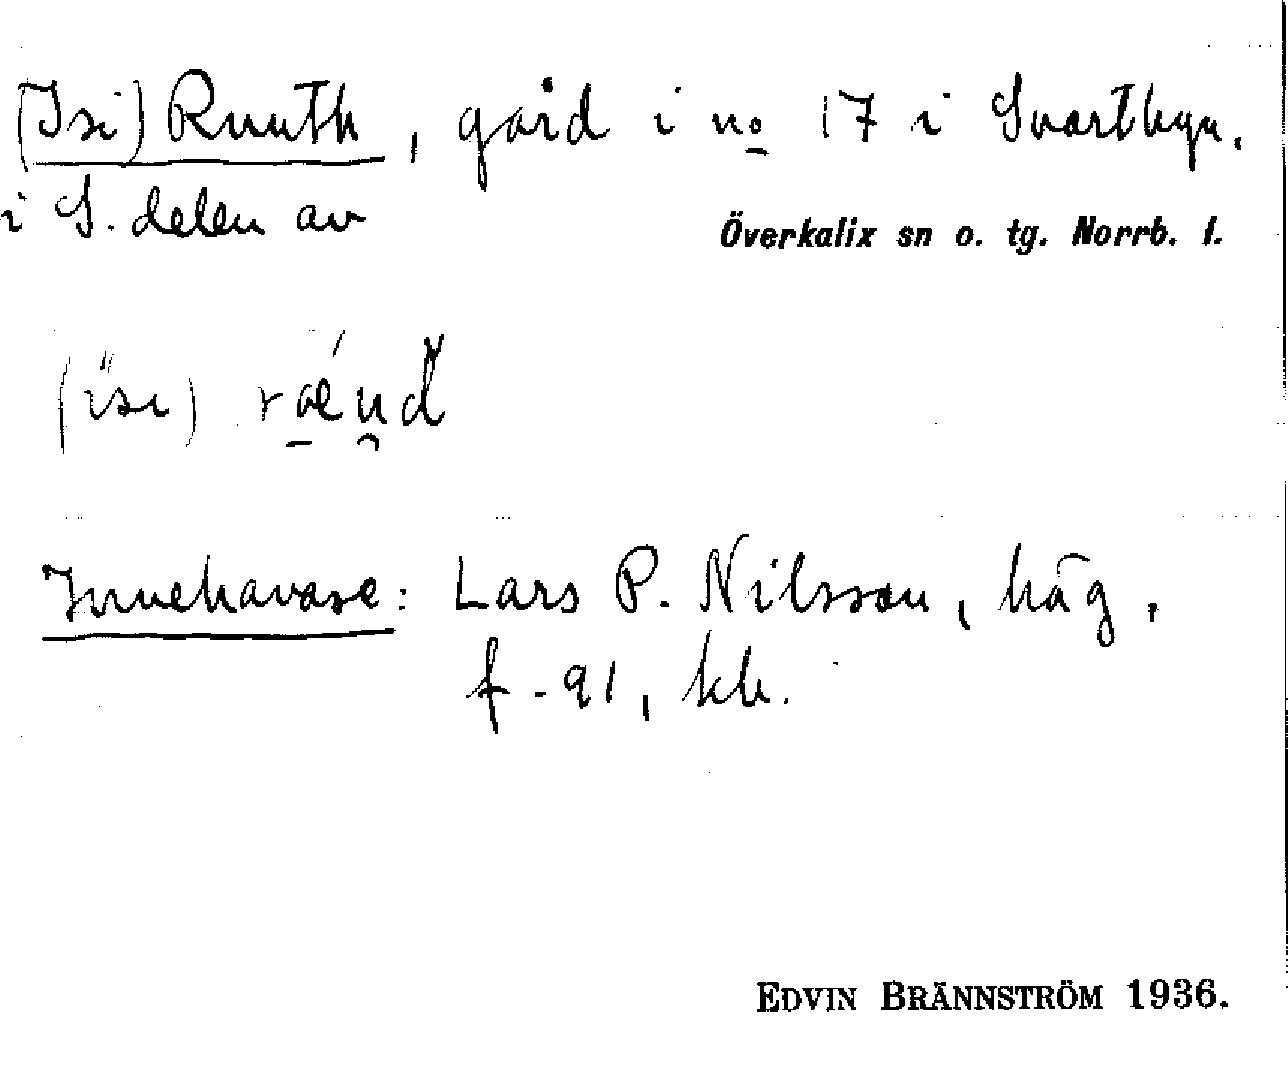 (Isi) Ruuth, gård i no 17 i Svartbyn.
i S. delen av
Överkalix sn o. tg. Norrb. l.
(isi)
Innehavare: Lars P. Nilsson, häg,
f -91, kh.
EDVIN BRÄNNSTRÖM 1936.